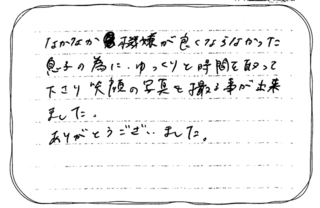 なかなか機嫌が良くならなかった
息子の為に、ゆっくりと時間を取って
下さり笑顔の写真を撮る事が出来
ました。
ありがとうございました。